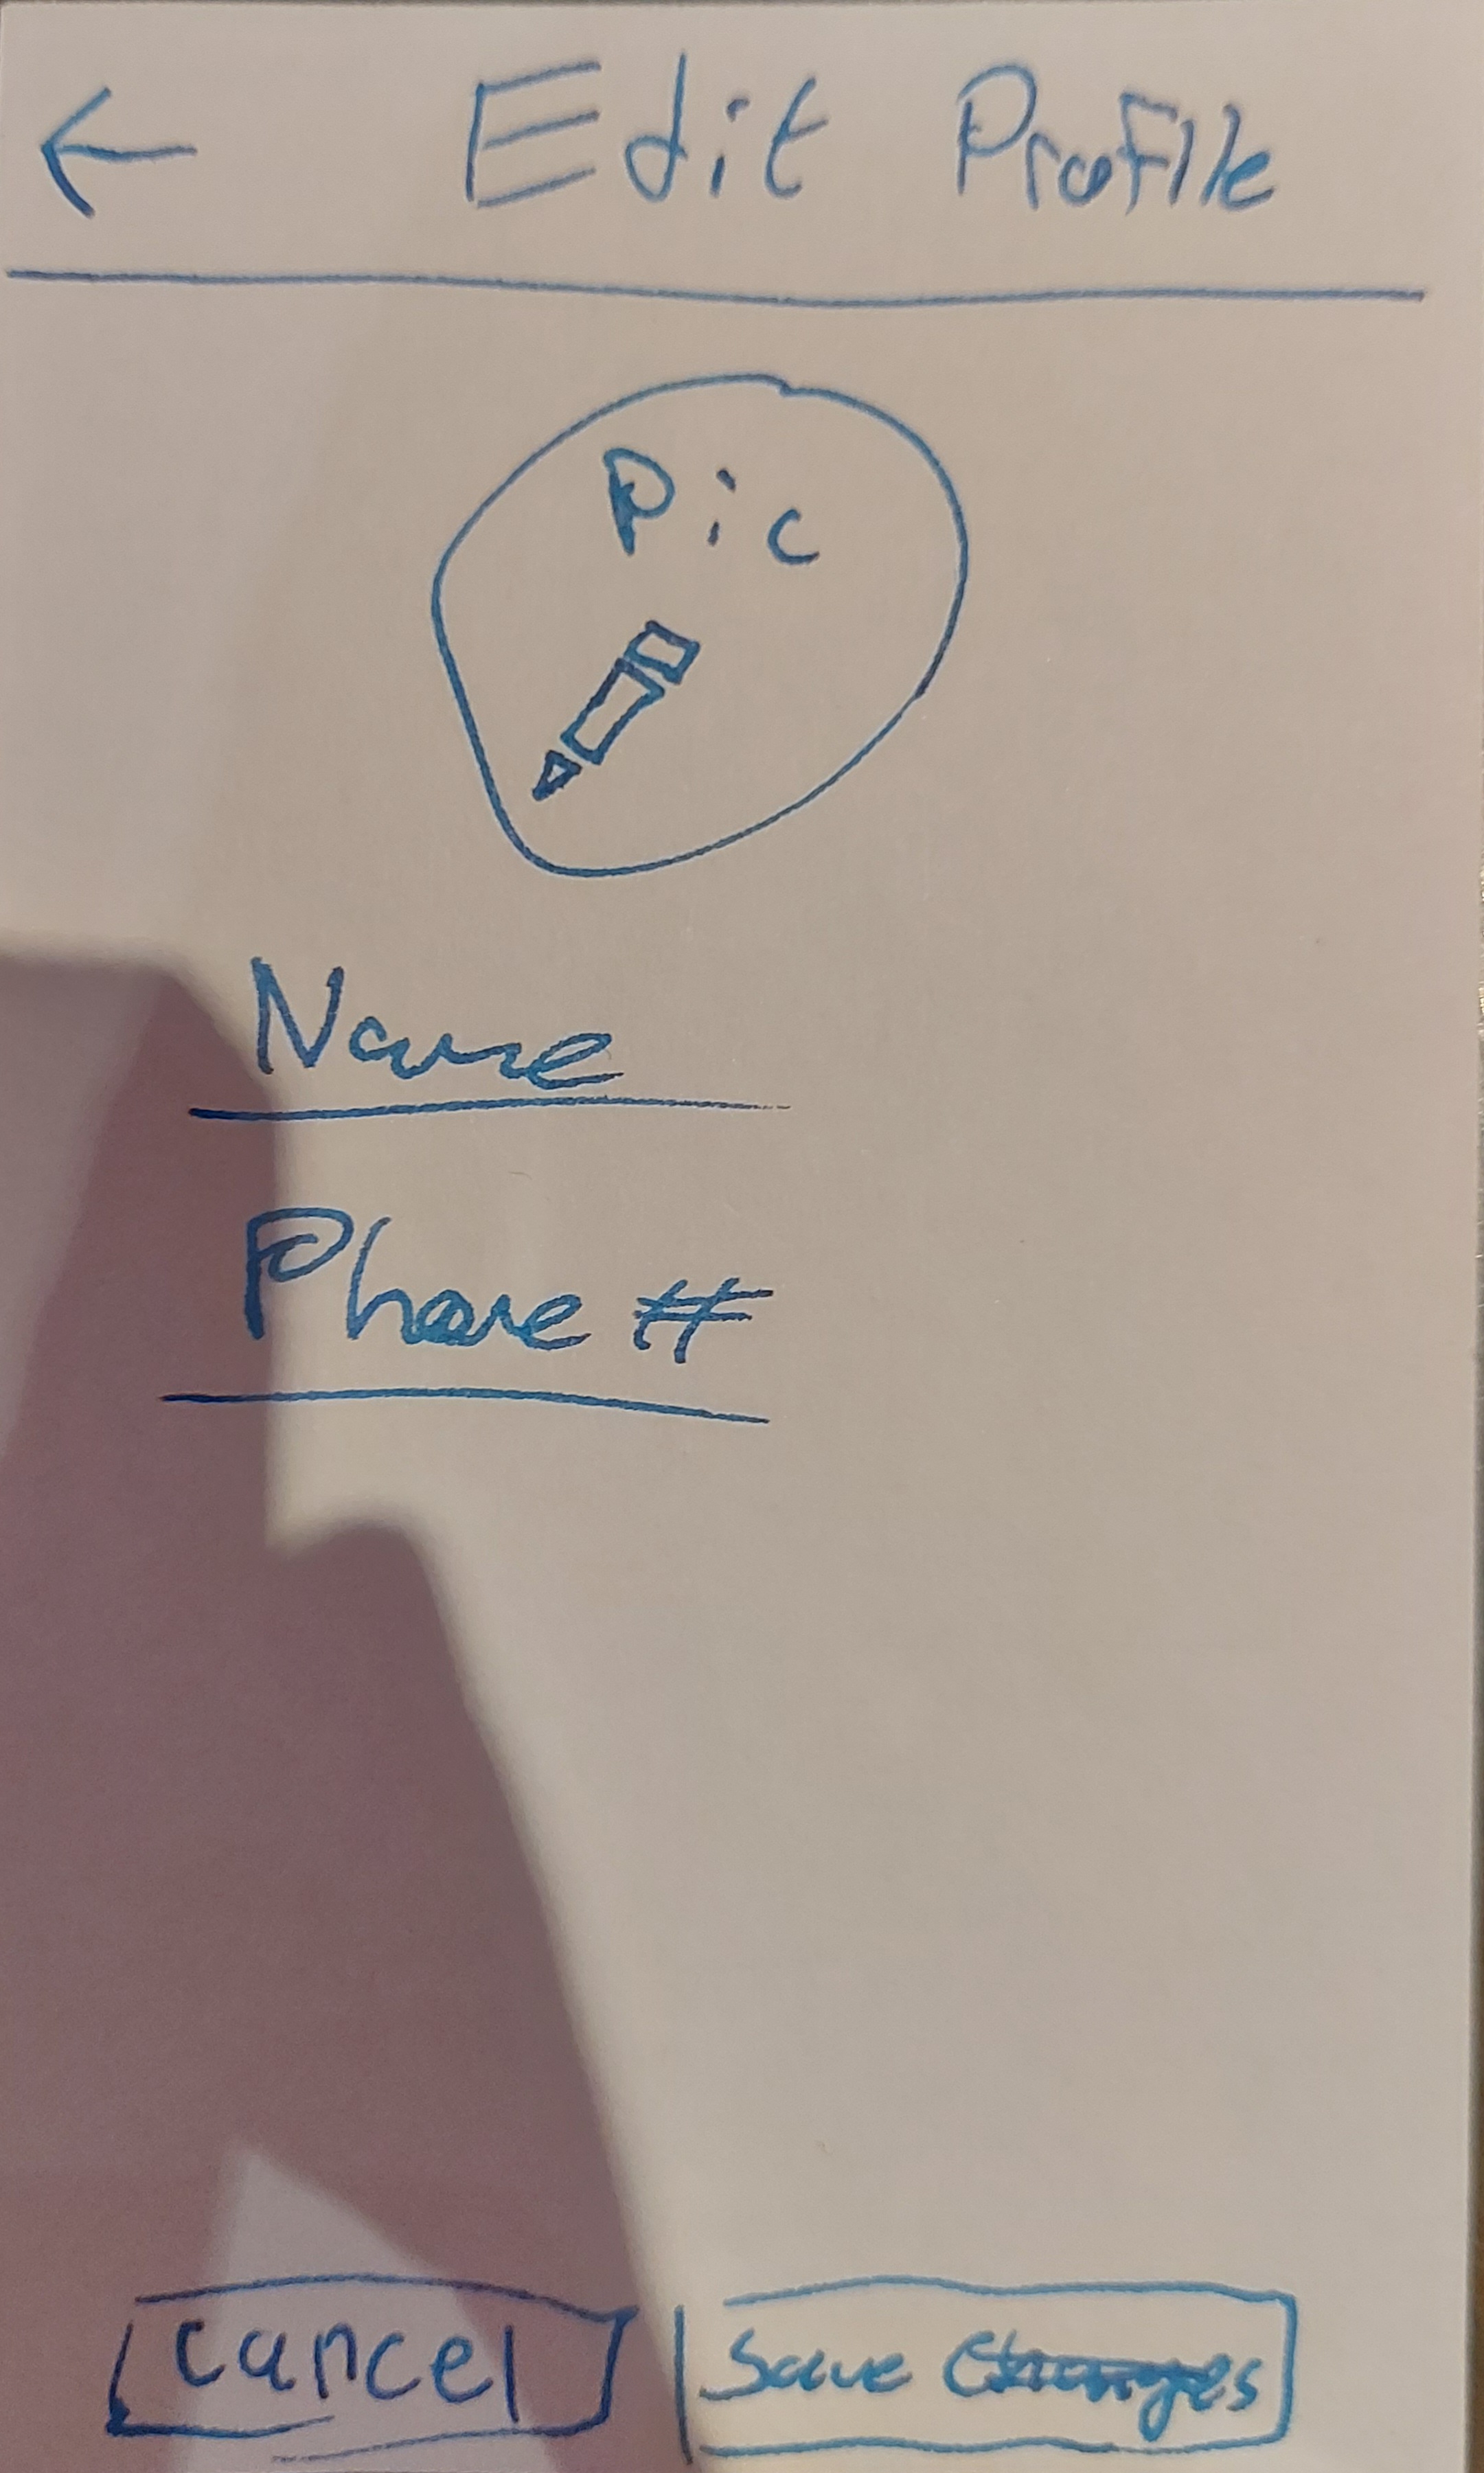 ← Edit Profile
Pic
Name
Phone #
Cancel
Save Changes